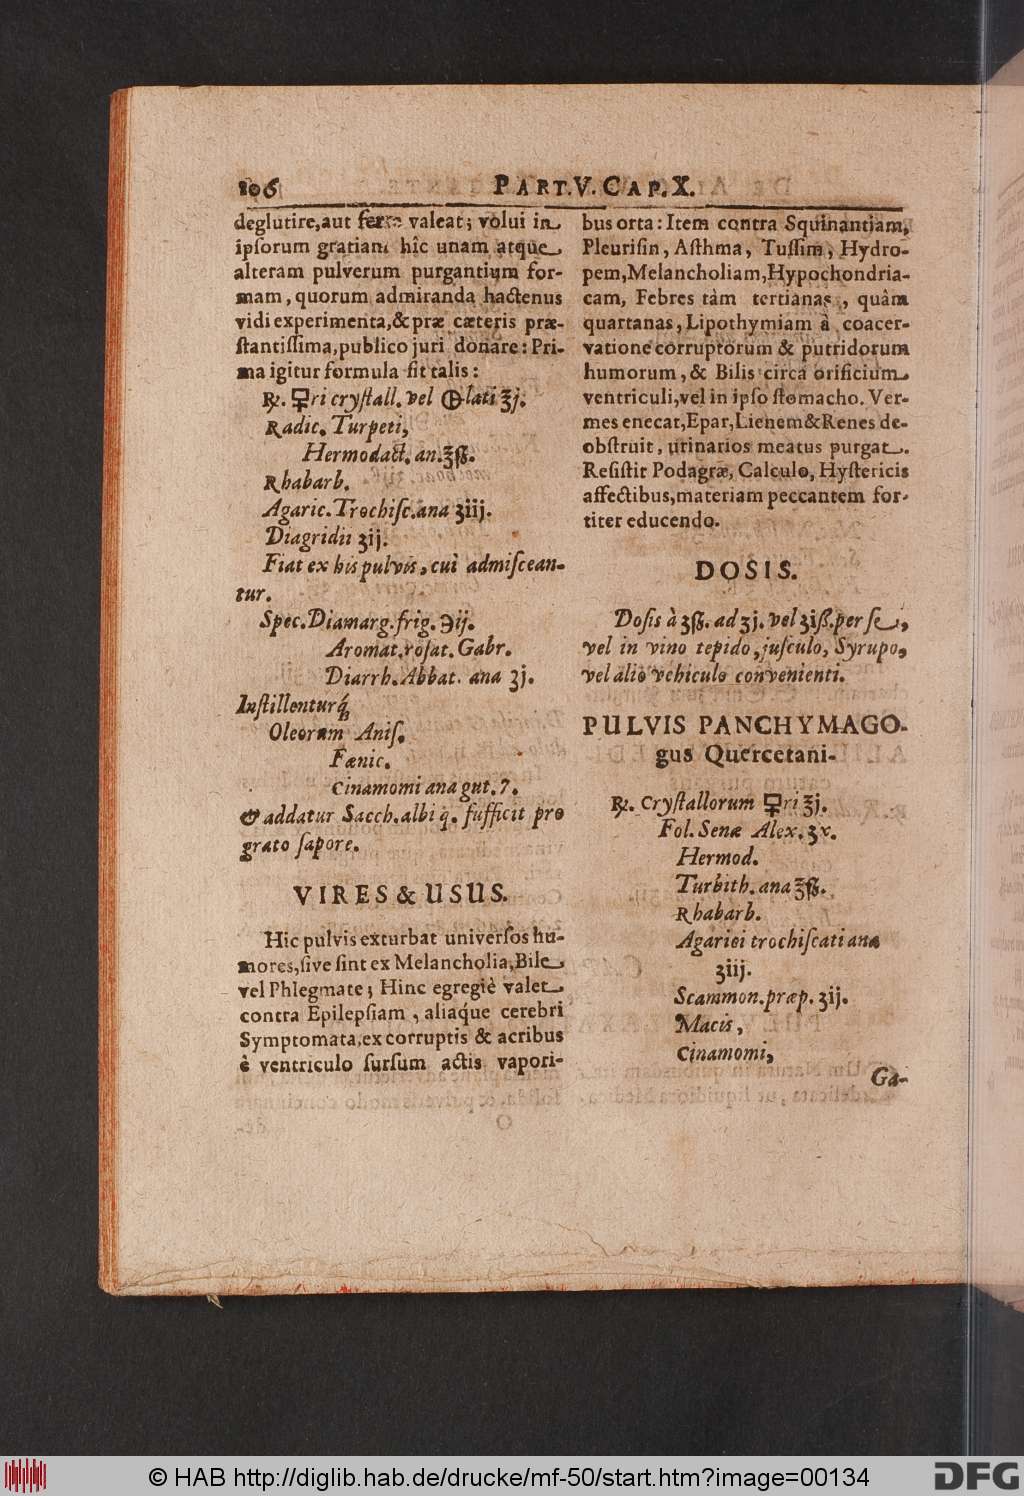 106
PART. V. CAP. X.
deglutire, aut ferre valeat; volui in
ipſorum gratiam hîc unam atque
alteram pulverum purgantium for-
mam, quorum admiranda hactenus
vidi experimenta, & præ cæteris præ-
ſtantiſſima, publico juri donare: Pri-
ma igitur formula ſit talis:
℞. 🜿ri cryſtall. vel 🜕lati ℥j.
Radic. Turpeti,
Hermodact. an. ℥ß.
Rhabarb.
Agaric. Trochiſc. ana ʒiij.
Diagridii ʒij.
Fiat ex his pulvis, cui admiſcean-
tur.
Spec. Diamarg. frig. ℈ij.
Aromat. roſat. Gabr.
Diarrh. Abbat. ana ʒj.
Inſtillenturq́;
Oleorum Aniſ.
Fœnic.
Cinamomi ana gut. 7.
& addatur Sacch. albi q. ſufficit pro
grato ſapore.
VIRES & USUS.
Hic pulvis exturbat univerſos hu-
mores, ſive ſint ex Melancholia, Bile,
vel Phlegmate; Hinc egregiè valet
contra Epilepſiam, aliaque cerebri
Symptomata, ex corruptis & acribus
è ventriculo ſurſum actis vapori-
bus orta: Item contra Squinantiam,
Pleuriſin, Aſthma, Tuſſim, Hydro-
pem, Melancholiam, Hypochondria-
cam, Febres tàm tertianas, quàm
quartanas, Lipothymiam à coacer-
vatione corruptorum & putridorum
humorum, & Bilis circa orificium
ventriculi, vel in ipſo ſtomacho. Ver-
mes enecat, Epar, Lienem & Renes de-
obſtruit, urinarios meatus purgat.
Reſiſtit Podagræ, Calculo, Hyſtericis
affectibus, materiam peccantem for-
titer educendo.
DOSIS.
Doſis à ʒß. ad ʒj. vel ʒiß. per ſe,
vel in vino tepido, juſculo, Syrupo,
vel alio vehiculo convenienti.
PULVIS PANCHYMAGO-
gus Quercetani-
℞. Cryſtallorum 🜿ri ℥j.
Fol. Senæ Alex. ʒx.
Hermod.
Turbith. ana ℥ß.
Rhabarb.
Agarici trochiſcati ana
ʒiij.
Scammon. præp. ʒij.
Macis,
Cinamomi,
Ga-
© HAB http://diglib.hab.de/drucke/mf-50/start.htm?image=00134
DFG